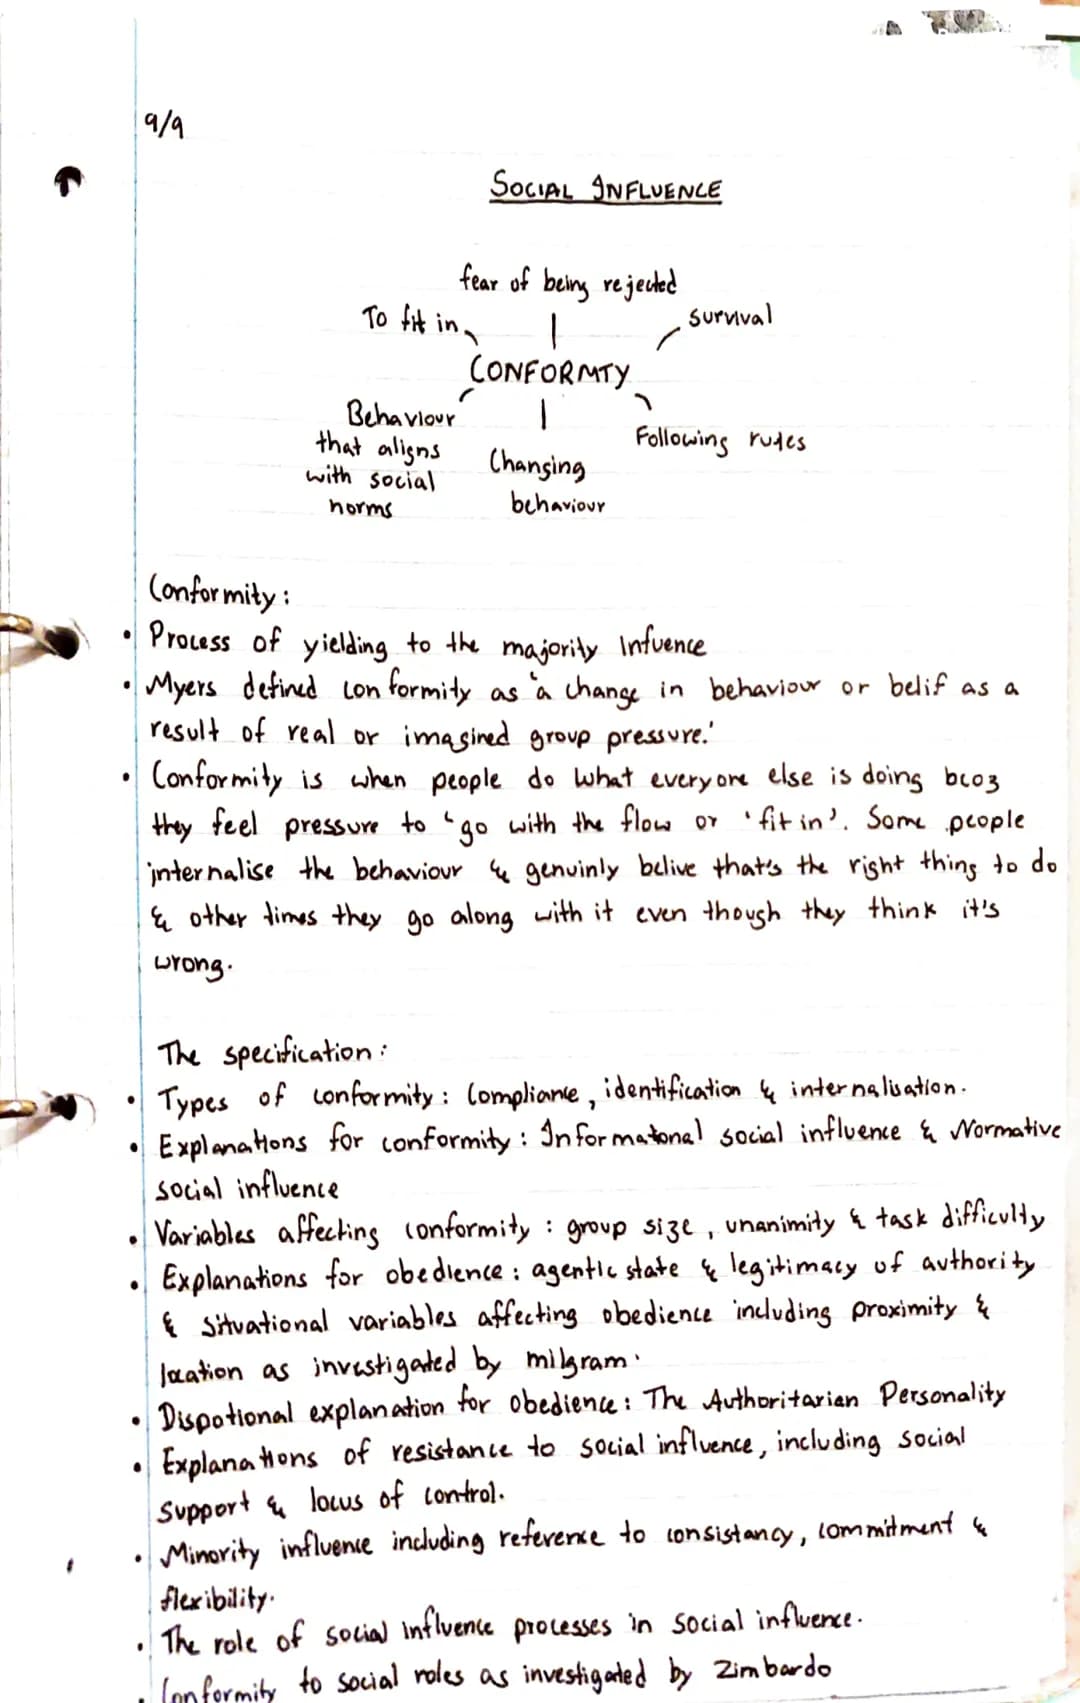 9/9
SOCIAL INFLUENCE
fear of being rejected
To fit in
survival
CONFORMTY
Behaviour
that aligns
with social
norms
Changing
behaviour
Following rules
Conformity:
• Process of yielding to the majority Infuence
• Myers defined conformity as 'a change in behaviour or belif as a
result of real or imagined group pressure.'
• Conformity is when people do what everyone else is doing bcoz
they feel pressure to 'go with the flow or 'fit in'. Some people
internalise the behaviour & genuinly belive that's the right thing to do
& other times they go along with it even though they think it's
wrong.
The specification:
• Types of conformity: Compliance, identification & internalisation.
• Explanations for conformity: Informatonal social influence & Normative
social influence
• Variables affecting conformity: group size, unanimity & task difficulty
• Explanations for obedience: agentic state & legitimacy of authority
& situational variables affecting obedience including proximity &
location as investigated by milgram.
• Dispotional explanation for obedience: The Authoritarian Personality
• Explanations of resistance to social influence, including social
support & locus of control.
• Minority influence including reference to consistancy, commitment &
flexibility.
• The role of social influence processes in social influence.
• Conformity to social roles as investigated by Zimbardo